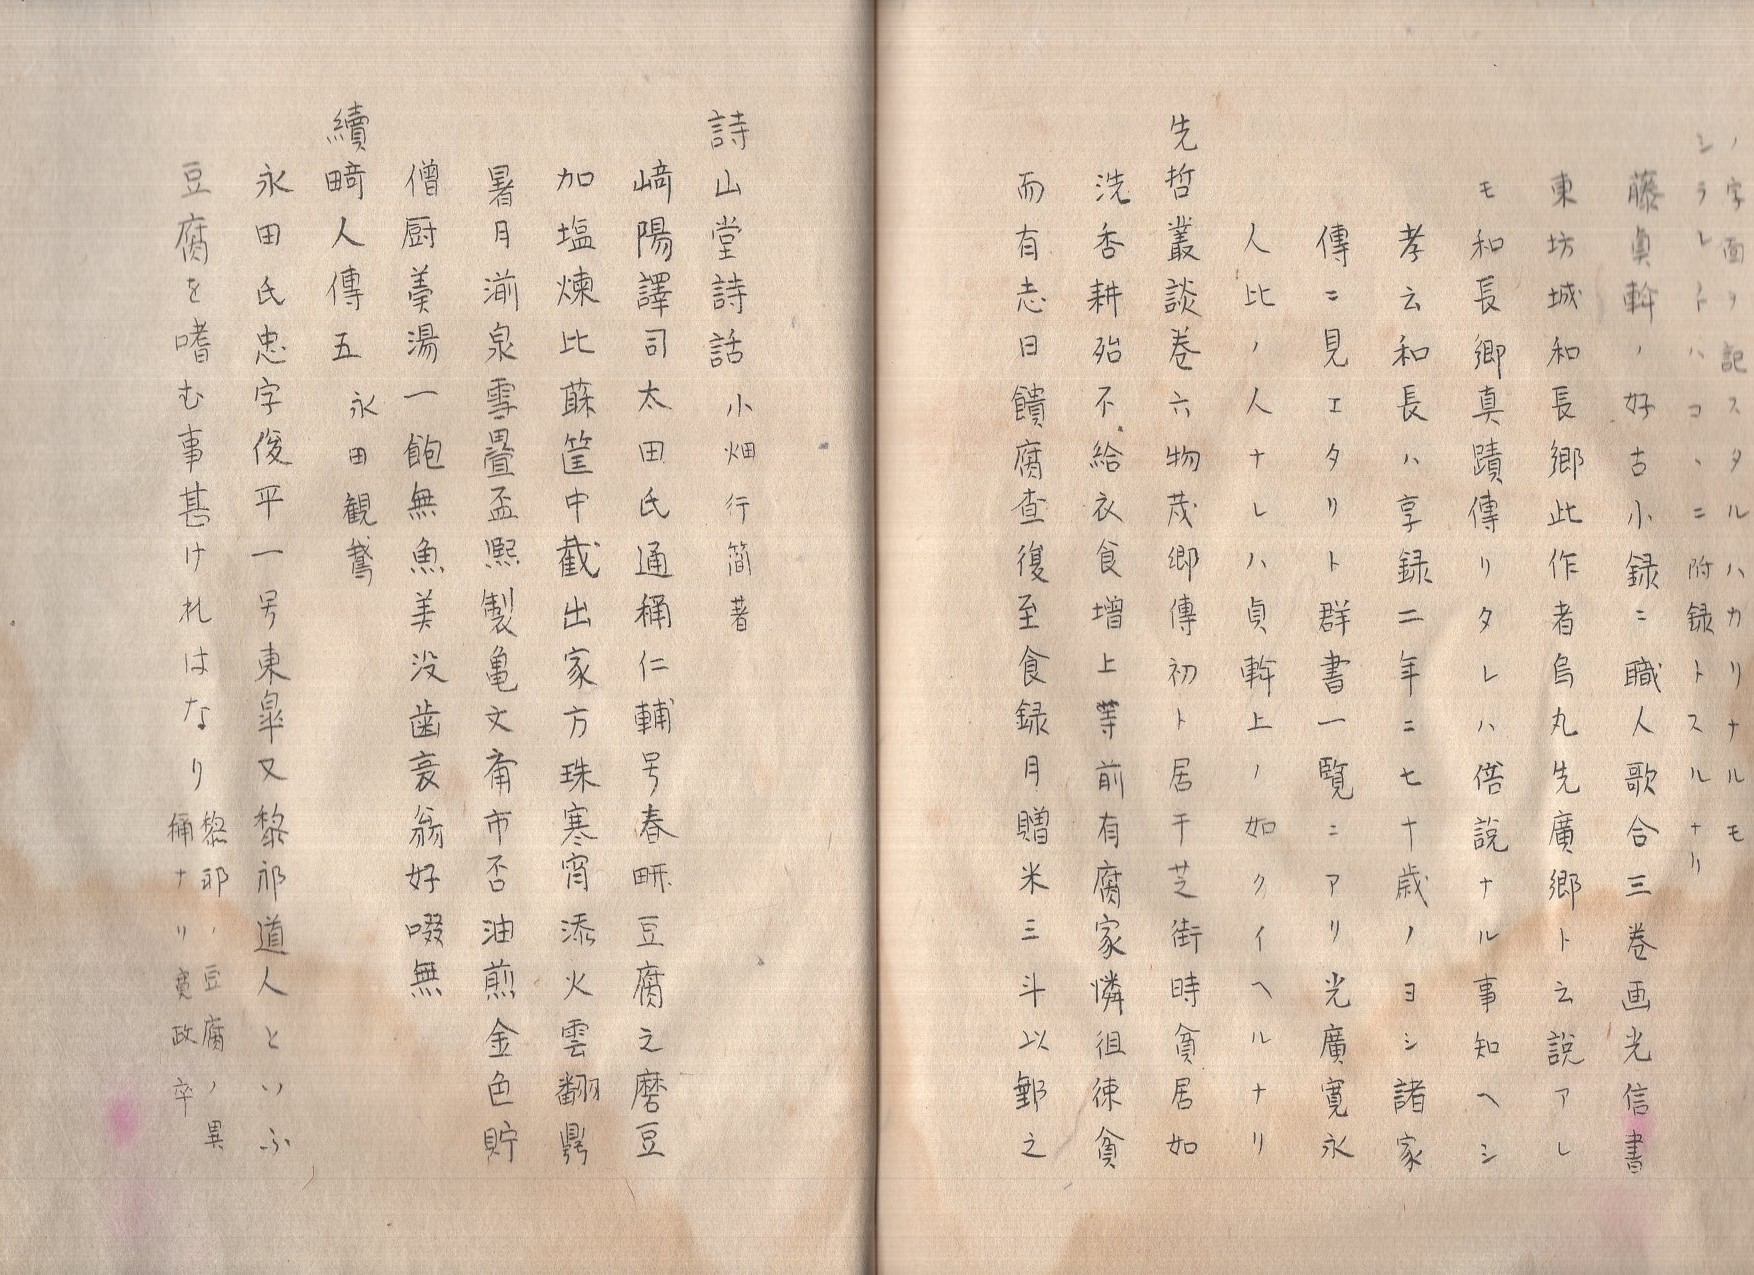 ノ字面ヲ記スタルハカリナルモ
シラレトハコヽニ附録トスルナリ
藤貞幹ノ好古小録ニ職人歌合三巻画光信書
東坊城和長郷此作者烏丸先廣郷ト云説アレ
モ和長郷真蹟傳リタレハ倍説ナル事知ヘシ
孝云和長ハ享録二年ニ七十歳ノヨシ諸家
傳ニ見エタリト群書一覧ニアリ光廣寛永
人比ノ人ナレハ貞幹上ノ如クイヘルナリ
先哲叢談巻六物茂郷傳初ト居于芝街時貧居如
洗舌耕殆不給衣食増上等前有腐家憐徂徠貧
而有志日饋腐査復至食録月贈米三斗以郵之
詩山堂詩話 小畑行簡著
﨑陽譯司太田氏通称仁輔号春畊豆腐之磨豆
加塩煉比蘇筐中截出家方珠寒宵添火雲翻鼎
暑月湔泉雪疊盃熈製亀文甭市否油煎金色貯
僧厨羮湯一飽無魚美没歯衰翁好啜無
續畸人傳五 永田観鵞
永田氏忠字俊平一号東皐又黎祁道人といふ
豆腐を嗜む事甚けれはなり
黎祁ノ豆腐ノ異
称ナリ寛政卒